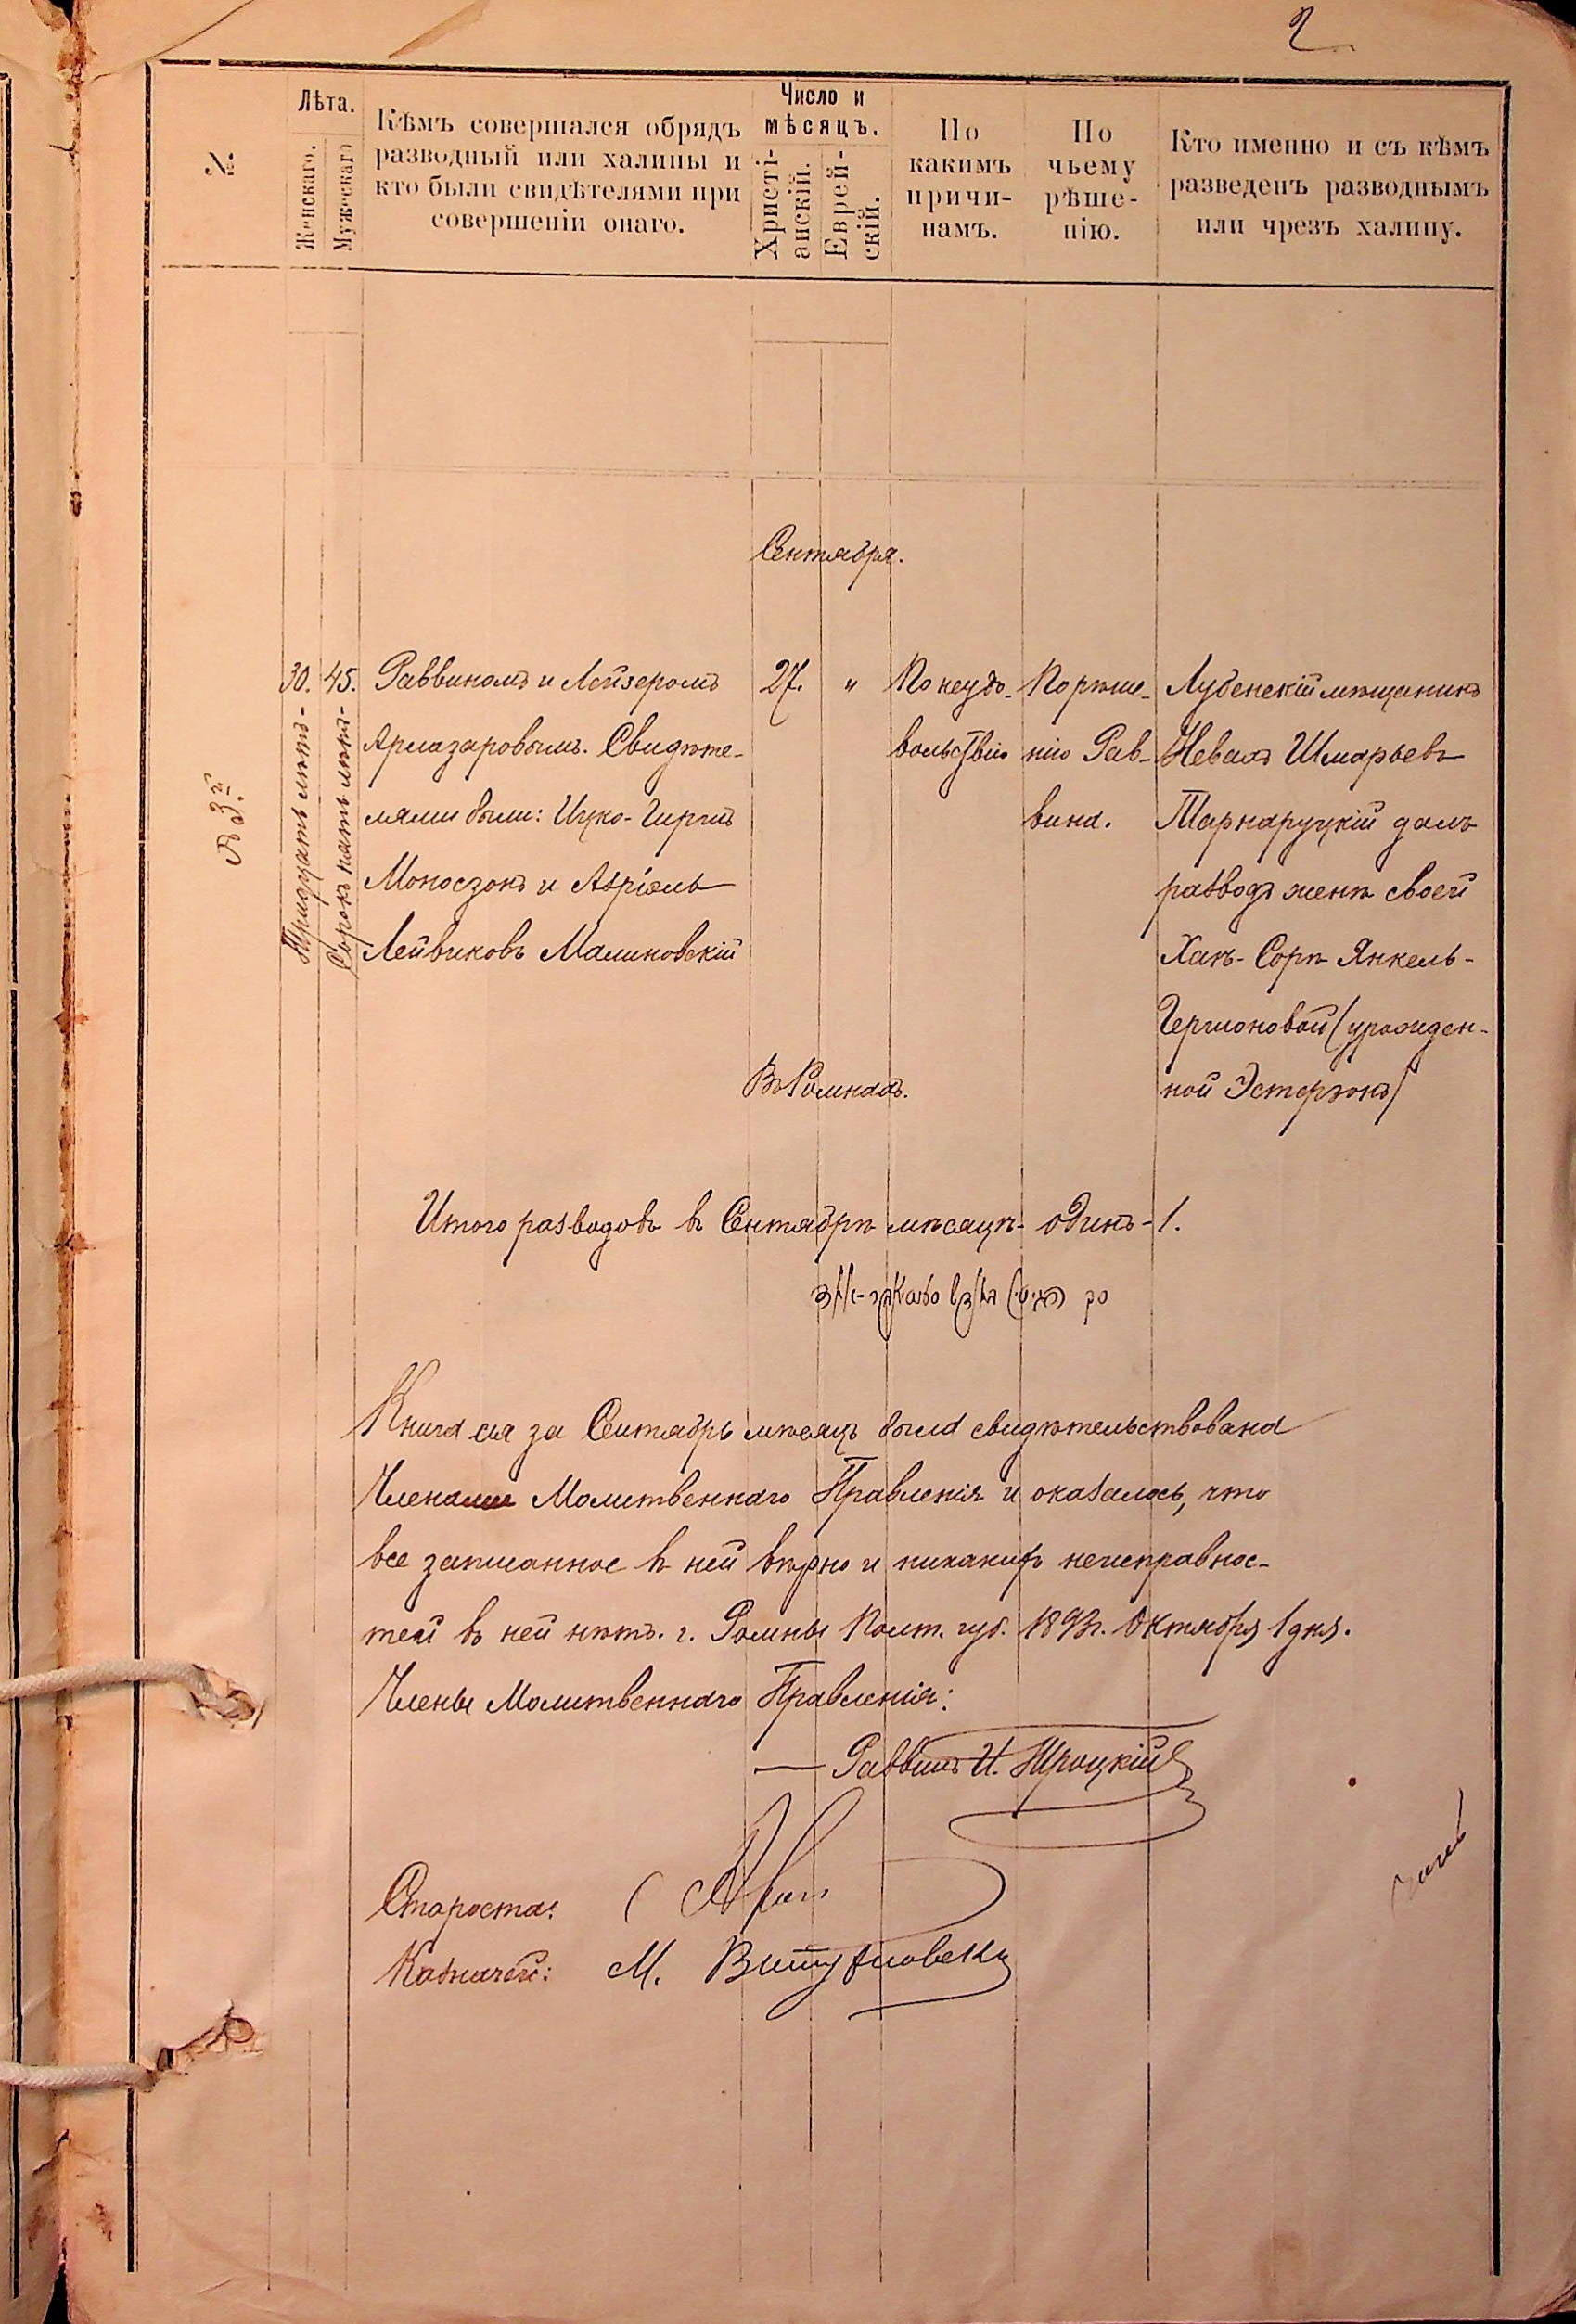 2
№
Лѣта.
Женскаго.
Мужескаго
Кѣмъ совершался обрядъ
разводный или халицы и
кто были свидѣтелями при
совершеніи онаго.
Число и
мѣсяцъ.
Христі-
анскій.
Еврей-
скій.
По
какимъ
причи-
намъ.
По
чьему
рѣше-
нію.
Кто именно и съ кѣмъ
разведенъ разводнымъ
или чрезъ халицу.
Сентября.
30.
Тридцать лѣтъ-
45.
Сорокъ пять лѣтъ-
Раввиномъ и Лейзеромъ
Армазаровымъ. Свидѣте-
лями были: Ицко-Гиршъ
Моносзонъ и Азріэль
Лейвиковъ Малиновскій
27.
"
По неудо-
вольствію
По рѣше-
нію Рав-
вина.
Лубенскій мѣщанинъ
Невахъ Шмарьевъ
Тарнаруцкій далъ
разводъ женѣ своей
Хаѣ-Сорѣ Янкель-
Гершоновой (урожден-
ной Эстерзонъ)
Въ Ромнахъ.
Итого разводовъ въ Сентябрѣ мѣсяцѣ- одинъ-1.
Книга сія за Сентябрь мѣсяцъ была свидѣтельствована
Членами Молитвеннаго Правленія и оказалось, что
все записанное въ ней вѣрно и никакихъ неисправнос-
тей въ ней нѣтъ. г. Ромны Полт. губ. 1893г. Октября 1 дня.
Члены Молитвеннаго Правленія:
— Раввинъ И. Троцкій
Староста:
Казначей: М.